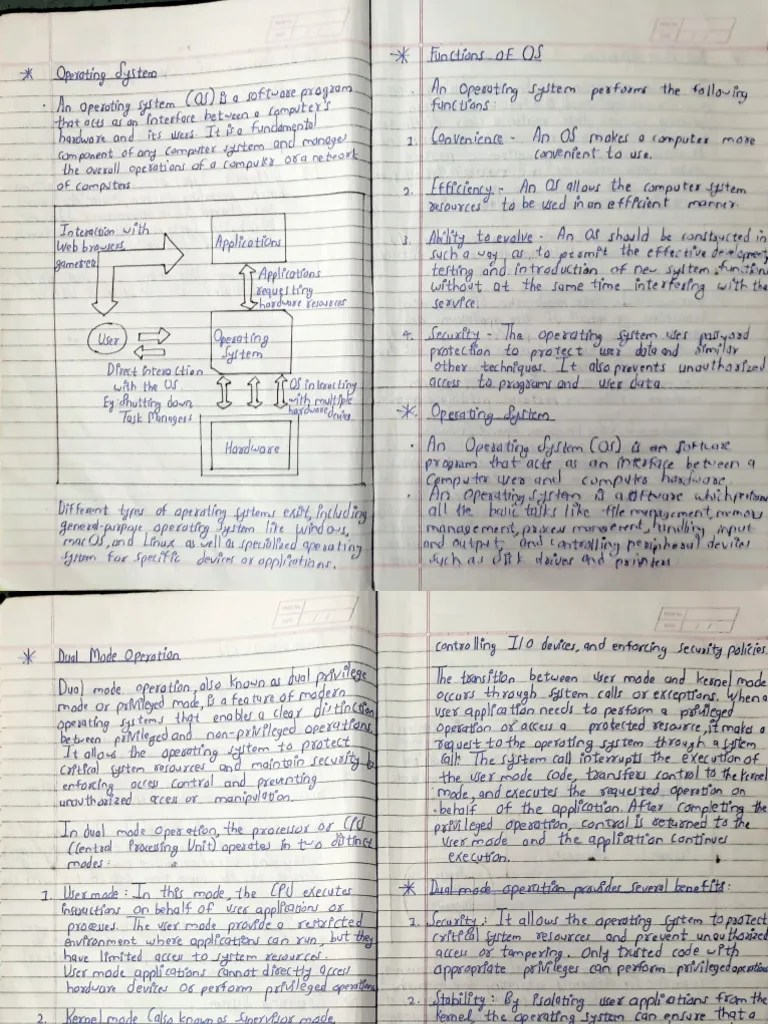 * Operating System
· An operating system (OS) is a software program
that acts as an interface between a computer's
hardware and its users. It is a fundamental
component of any computer system and manages
the overall operations of a computer or a network
of computers
Interaction with
Web browsers,
games etc
Applications
Applications
requesting
hardware resources
User
Operating
System
Direct Interaction
with the OS
Eg: Shutting down
Task Managers
OS interacting
with multiple
hardware device
Hardware
Different types of operating systems exist, including
general-purpose operating system like windows,
macOS, and Linux as well as specialized operating
system for specific devices or applications.
* Functions of OS
· An Operating system performs the following
functions:
1. Convenience - An OS makes a computer more
convenient to use.
2. Efficiency - An OS allows the computer system
resources to be used in an efficient manner.
3. Ability to evolve - An OS should be constructed in
such a way as to permit the effective development,
testing and introduction of new system functions
without at the same time interfering with the
service.
4. Security - The operating system uses password
protection to protect user data and similar
other techniques. It also prevents unauthorized
access to programs and user data.
* Operating System
· An Operating System (OS) is an software
program that acts as an interface between a
Computer user and computer hardware.
· An Operating system is a software which performs
all the basic talks like file management, memory
management, process management, handling input
and output, and controlling peripheral devices
such as disk drives and printers
* Dual Mode Operation
Dual mode operation, also known as dual privilege
mode or privileged mode, is a feature of modern
operating systems that enables a clear distinction
between privileged and non-privileged operations.
It allows the operating system to protect
critical system resources and maintain security by
enforcing access control and preventing
unauthorized access or manipulation.
In dual mode operation, the processor or CPU
(Central Processing Unit) operates in two distinct
modes:
1. User mode: In this mode, the CPU executes
instructions on behalf of user applications or
processes. The user mode provide a restricted
environment where applications can run, but they
have limited access to system resources.
User mode applications cannot directly access
hardware devices or perform privileged operations
2. Kernel mode (also known as supervisor mode
controlling I/O devices, and enforcing security policies.
The transition between user mode and kernel mode
occurs through system calls or exceptions. When a
user application needs to perform a privileged
operation or access a protected resource, it makes a
request to the operating system through a system
call. The system call interrupts the execution of
the user mode code, transfers control to the kernel
mode, and executes the requested operation on
behalf of the application. After completing the
privileged operation, control is returned to the
user mode and the application continues
execution.
* Dual mode operation provides several benefits:
1. Security: It allows the operating system to protect
critical system resources and prevent unauthorized
access or tampering. Only trusted code with
appropriate privileges can perform privileged operations
2. Stability: By isolating user applications from the
kernel, the operating system can ensure that a